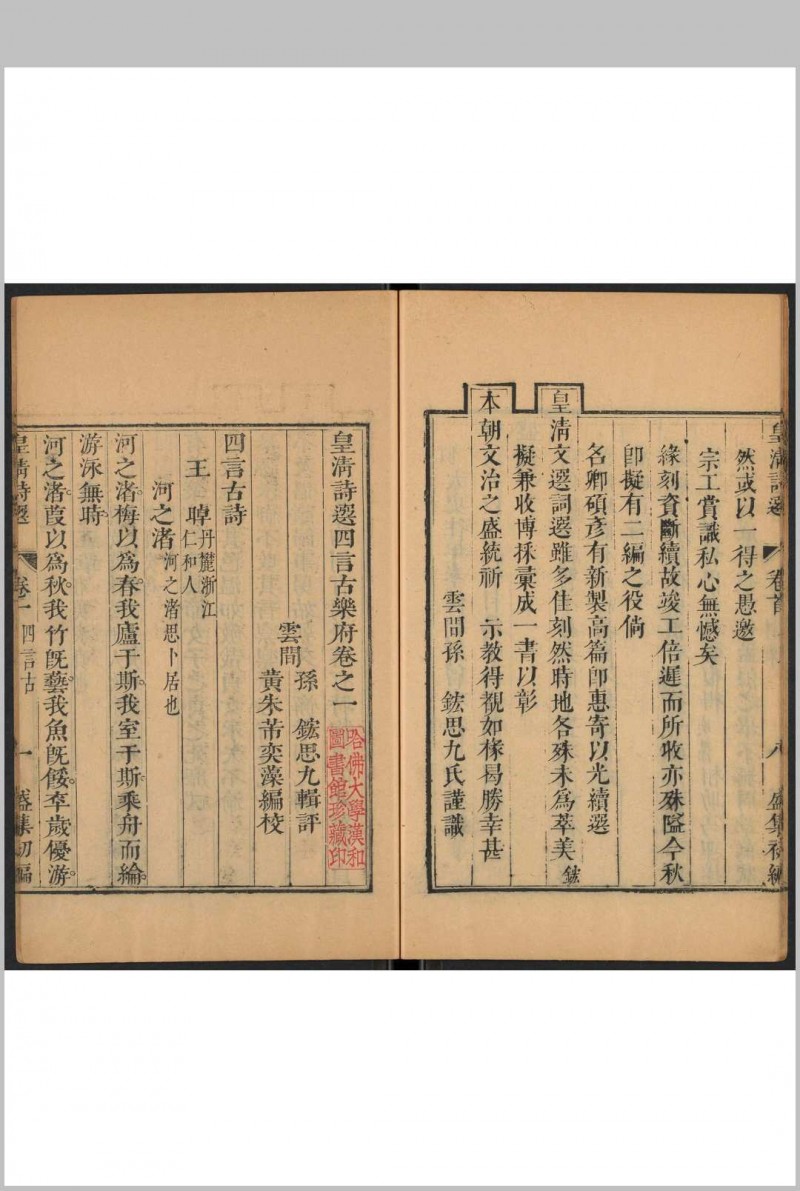 皇清詩選
卷首
八
盛集初編
然或以一得之愚邀
宗工賞識私心無憾矣
緣刻資斷續故竣工倍遲而所收亦殊隘今秋
卽擬有二編之役倘
名卿碩彥有新製高篇卽惠寄以光續選
皇清文選詞選雖多佳刻然時地各殊未爲萃美鋐
擬兼收博採彙成一書以彰
本朝文治之盛統祈 示教得覩如椽曷勝幸甚
雲間孫 鋐思九氏謹識
皇清詩選四言古樂府卷之一
哈佛大學漢和
圖書館珍藏印
孫 鋐思九輯評
雲間
黃朱芾奕藻編校
四言古詩
王 晫丹麓浙江
仁和人
河之渚河之渚思卜居也
河之渚梅以爲春我廬于斯我室于斯乘舟而綸
游泳無時
河之渚葭以爲秋我竹旣藝我魚旣餒卒歲優游
皇清詩選
卷一 四言古
一
盛集初編